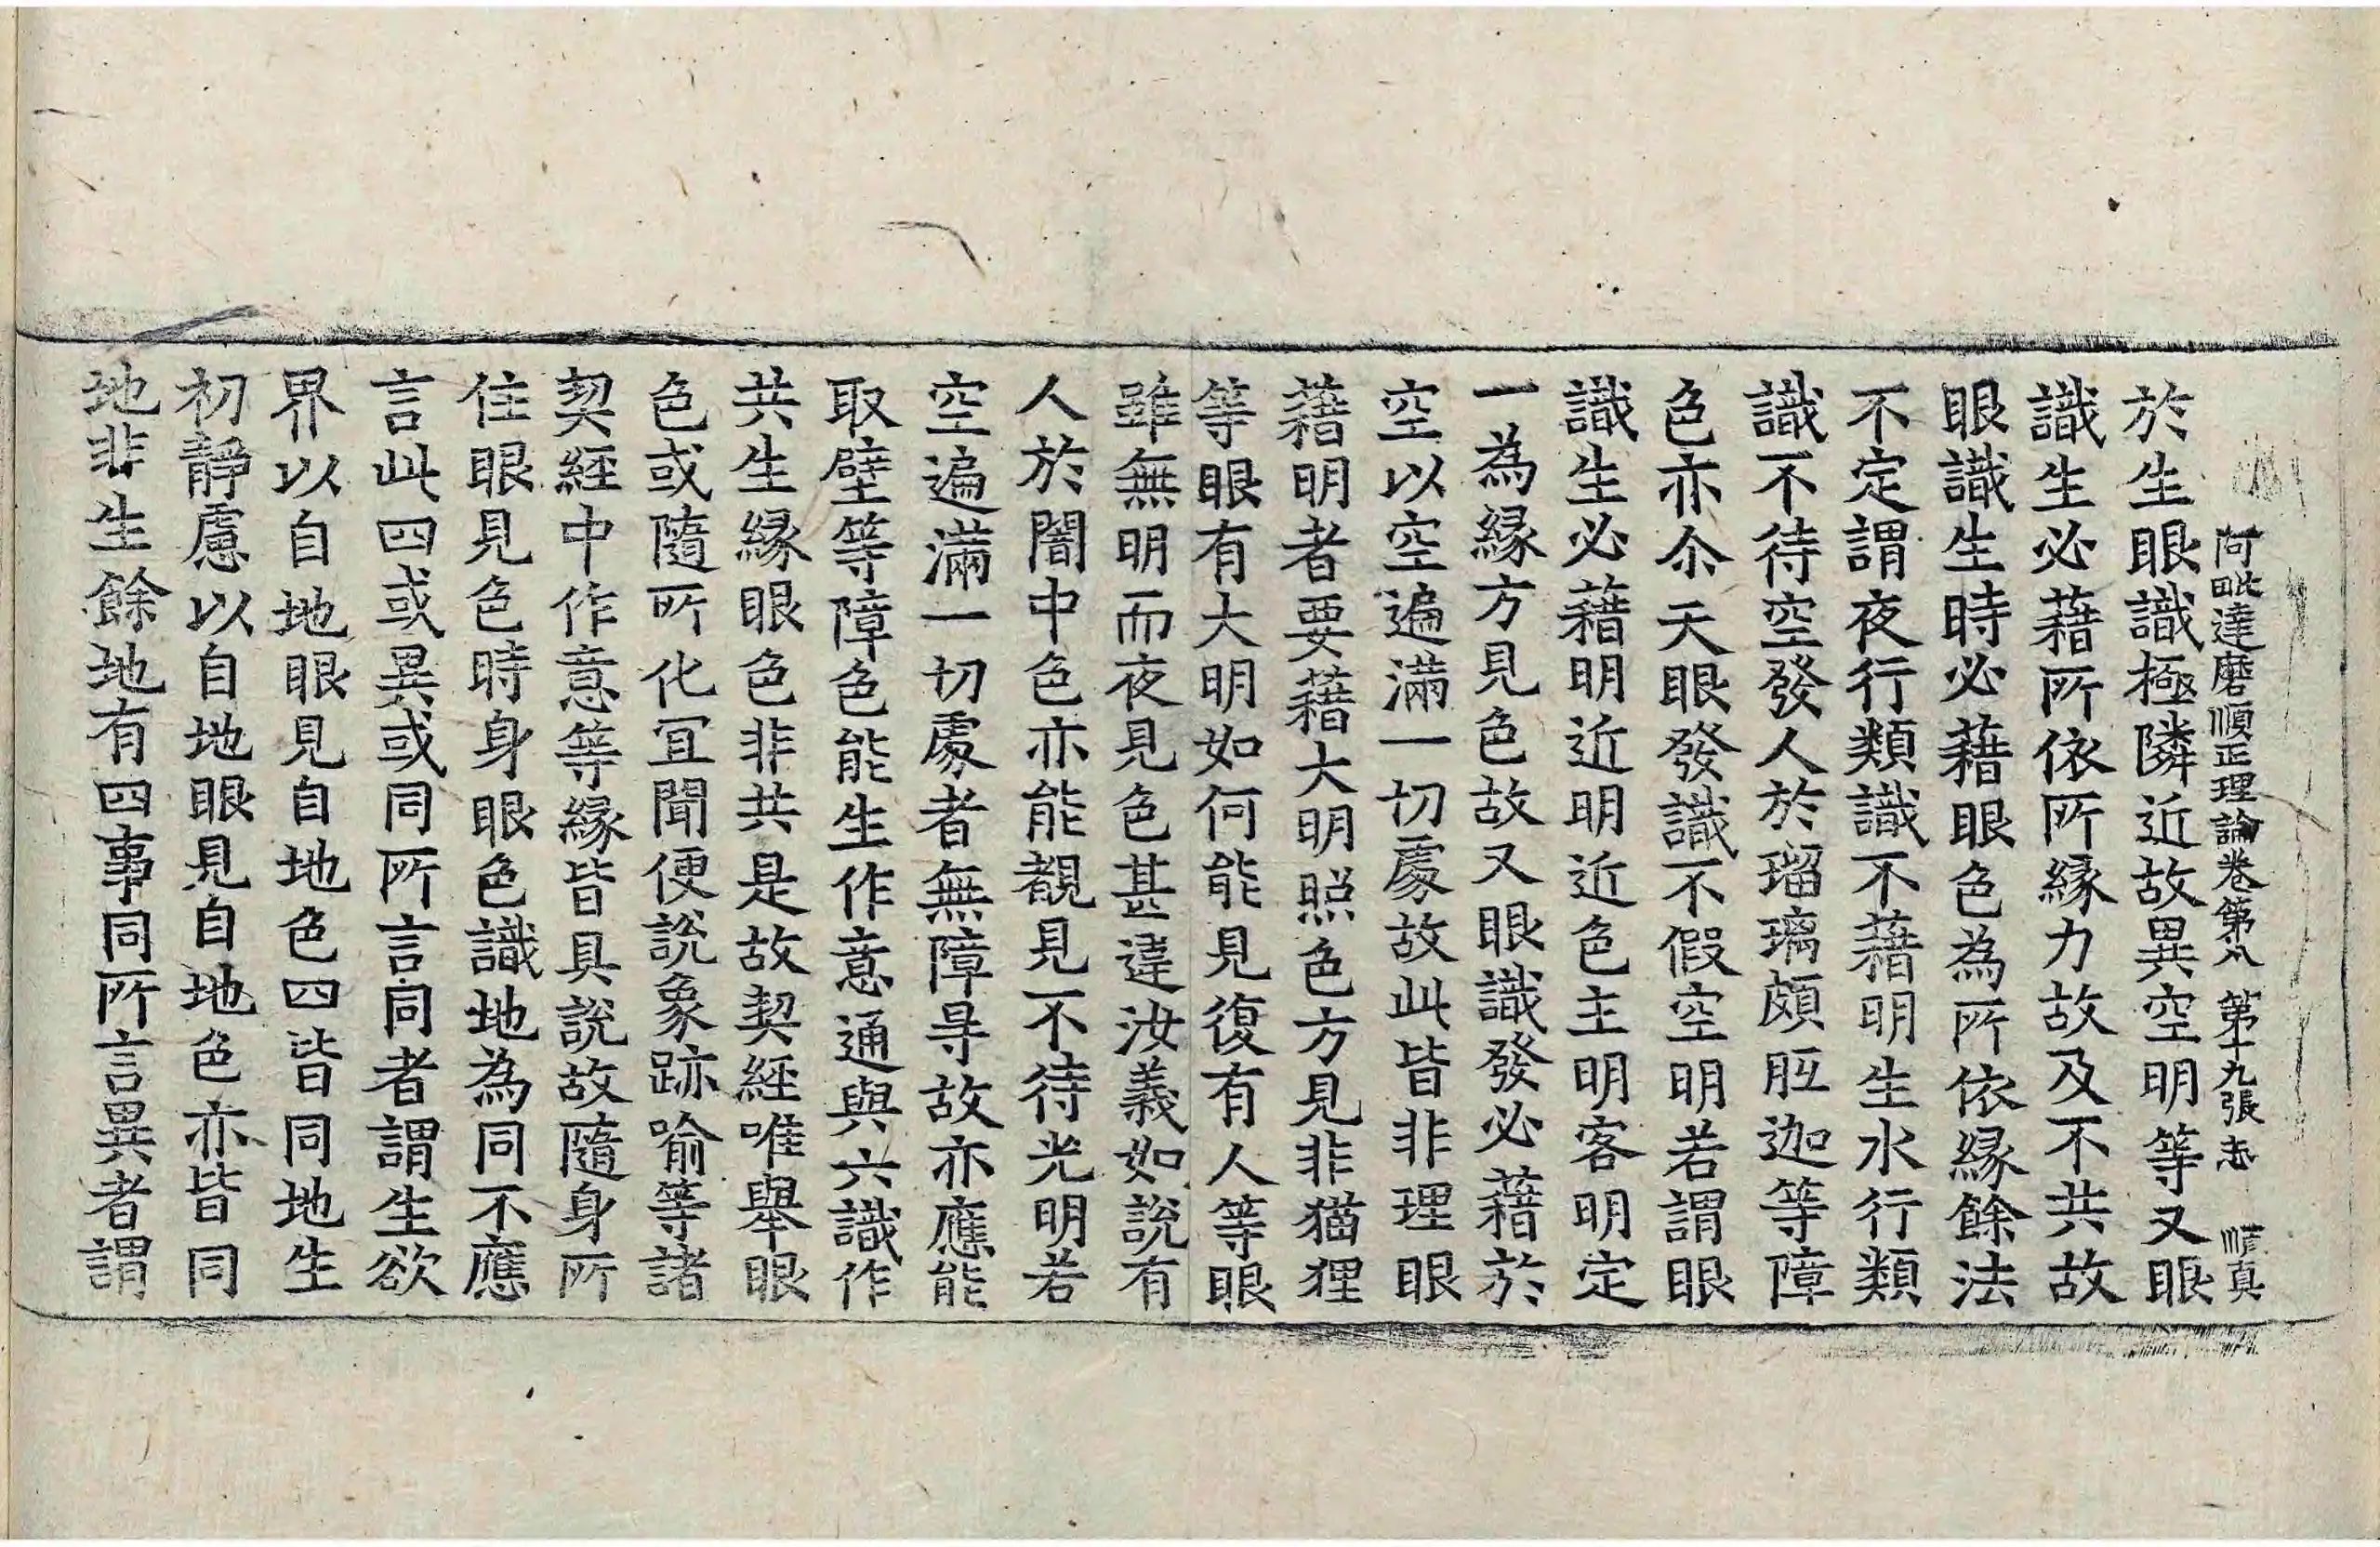 阿毗達磨順正理論卷第八 第十九張 志 順真
於生眼識極隣近故異空明等又眼
識生必藉所依所縁力故及不共故
眼識生時必藉眼色為所依縁餘法
不定謂夜行類識不藉明生水行類
識不待空發人於瑠璃頗胝迦等障
色亦尒天眼發識不假空明若謂眼
識生必藉明近明近色主明客明定
一為縁方見色故又眼識發必藉於
空以空遍滿一切處故此皆非理眼
藉明者要藉大明照色方見非猫狸
等眼有大明如何能見復有人等眼
雖無明而夜見色甚違汝義如說有
人於闇中色亦能覩見不待光明若
空遍滿一切處者無障㝵故亦應能
取壁等障色能生作意通與六識作
共生縁眼色非共是故契經唯舉眼
色或隨所化冝聞便說象跡喻等諸
契經中作意等縁皆具說故隨身所
住眼見色時身眼色識地為同不應
言此四或異或同所言同者謂生欲
界以自地眼見自地色四皆同地生
初靜慮以自地眼見自地色亦皆同
地非生餘地有四事同所言異者謂